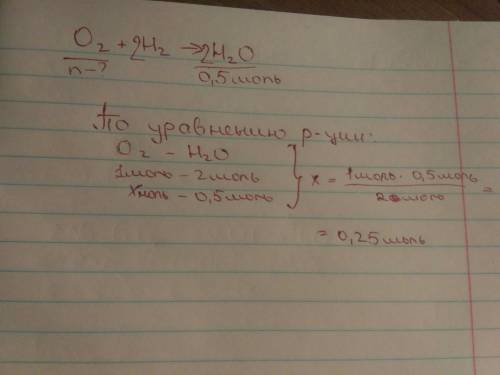 O₂ + 2H₂ → 2H₂O
n-? 0,5 моль
По уравнению р-ции:
O₂ - H₂O
1 моль - 2 моль
x моль - 0,5 моль
x = 1 моль · 0,5 моль / 2 моль =
= 0,25 моль